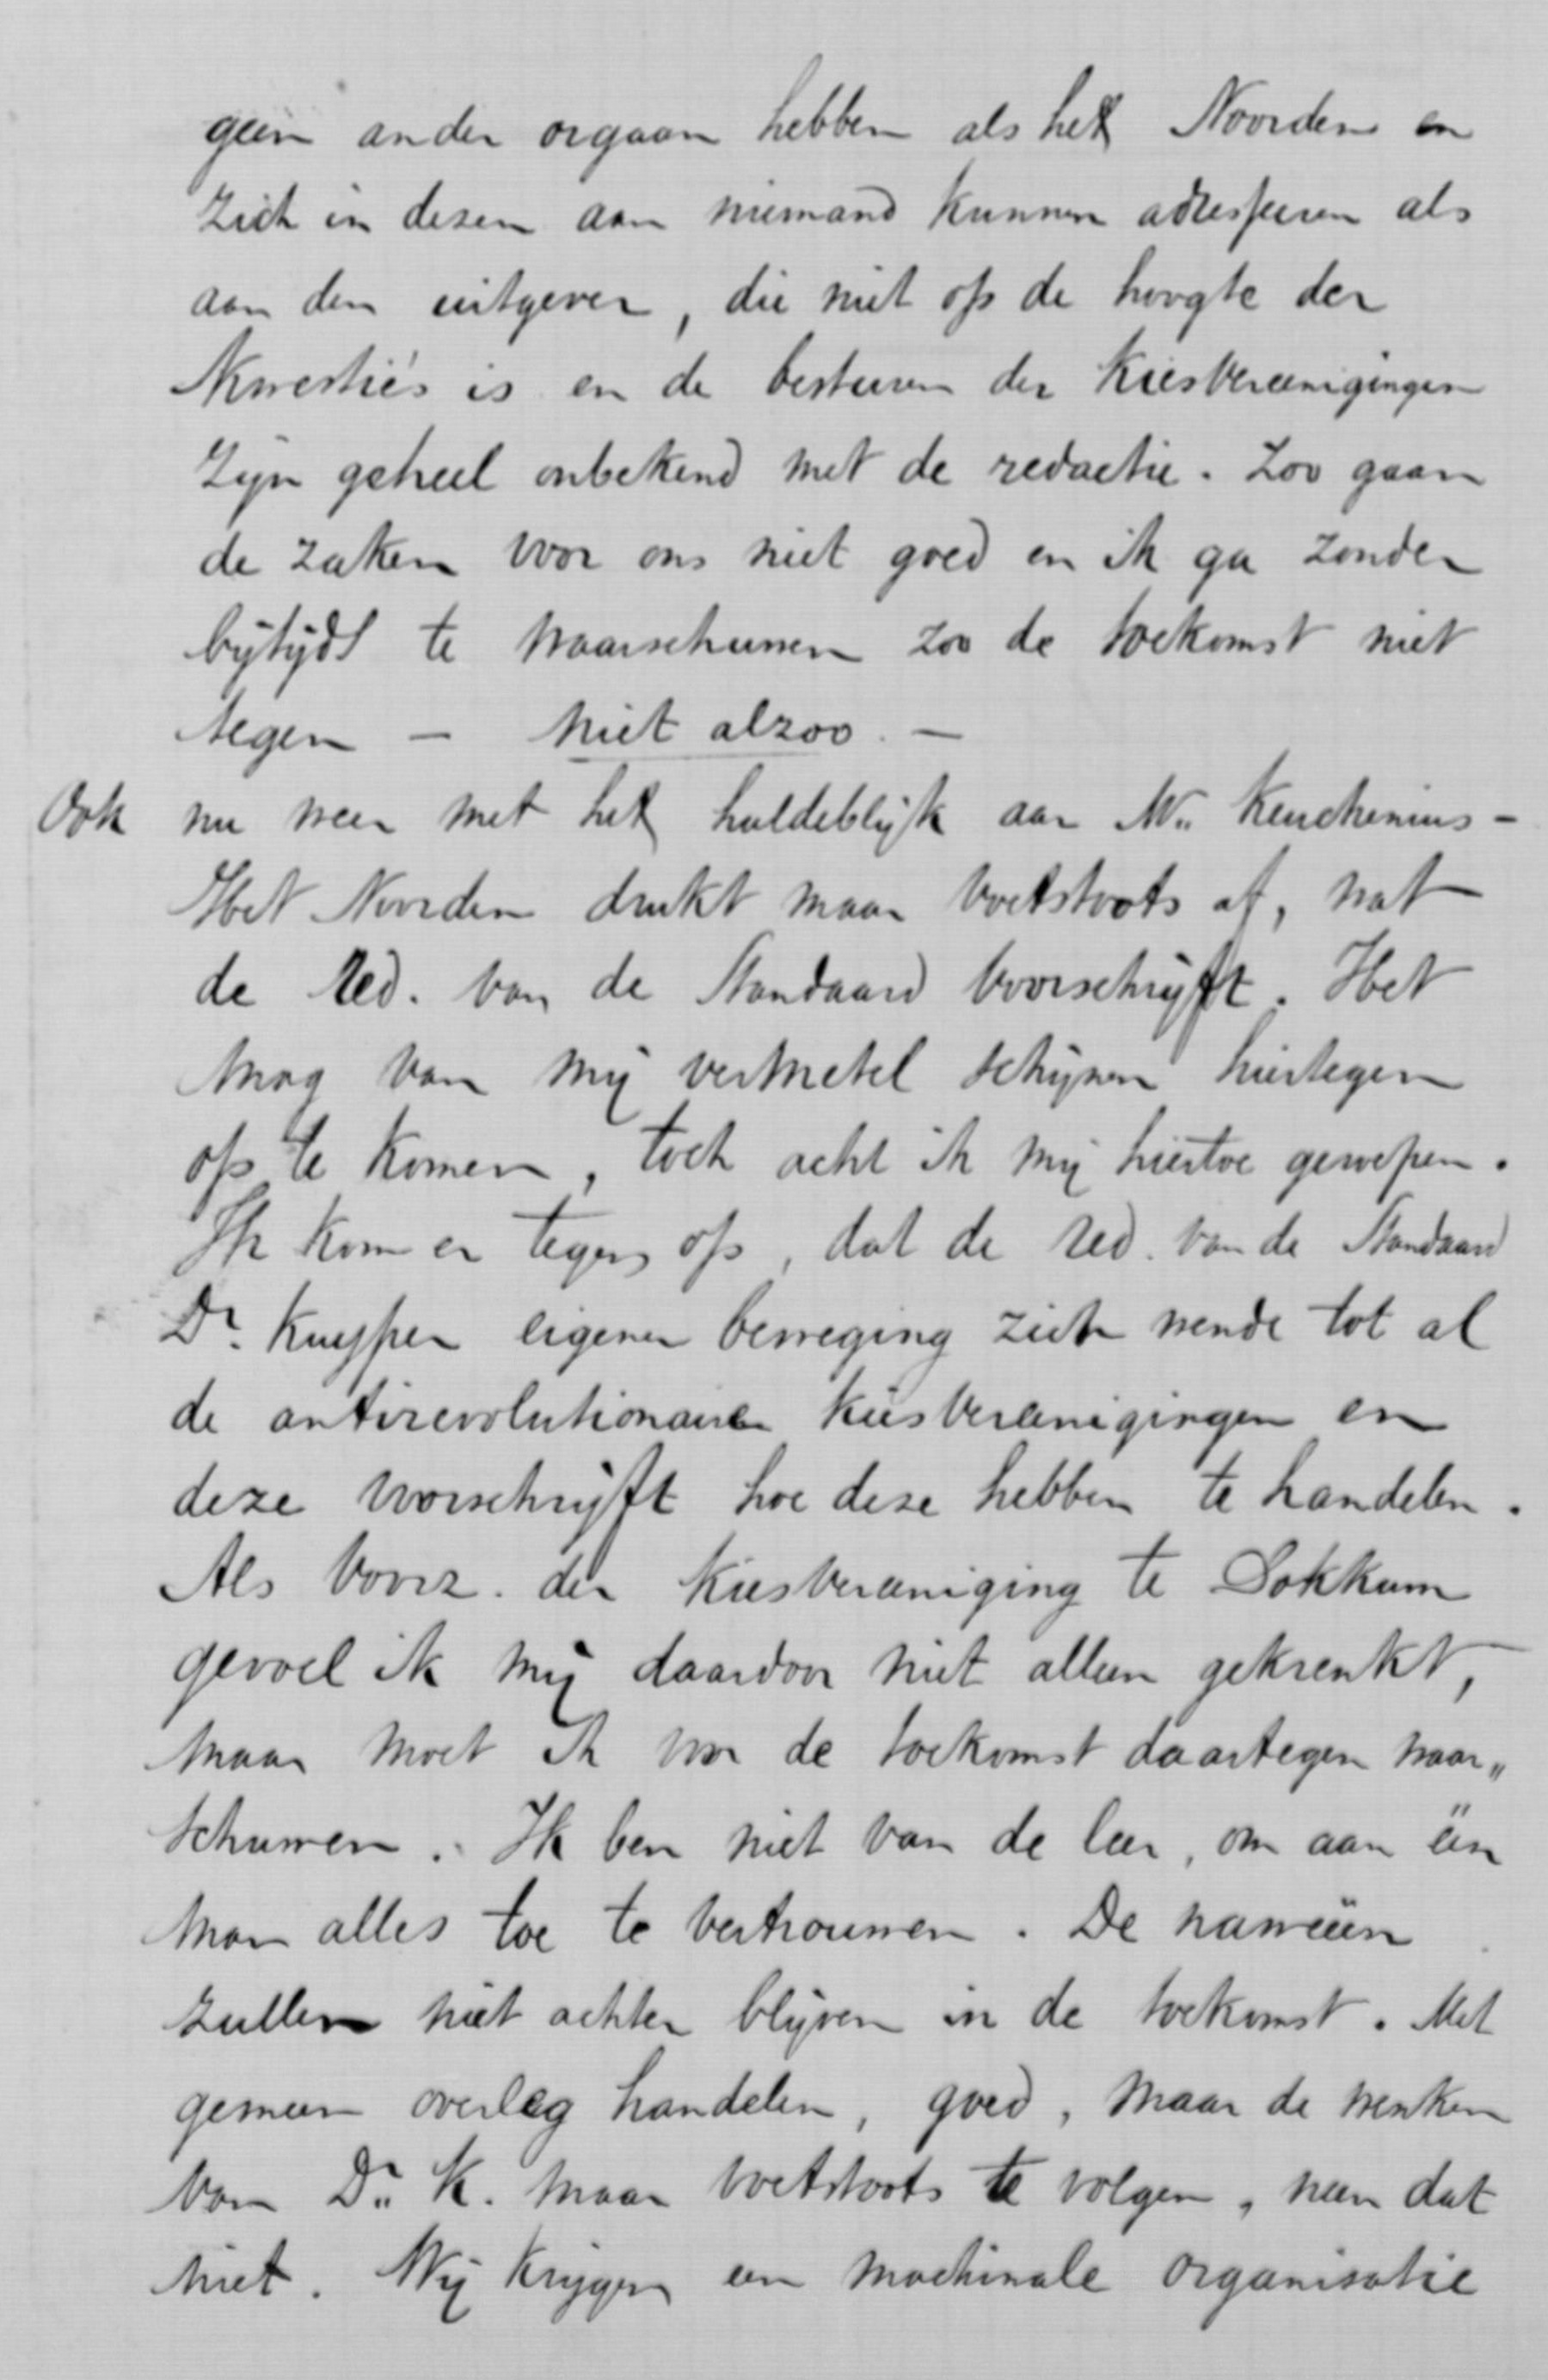 geen ander orgaan hebben als het Noorden en
zich in dezen aan niemand kunnen adresseeren als
aan den uitgever, die niet op de hoogte der
kwestie's is en de besturen der Kiesvereenigingen
zijn geheel onbekend met de redactie. Zoo gaan
de zaken voor ons niet goed en ik ga zonder
bijtijds te waarschuwen zoo de toekomst niet
tegen - niet alzoo. -
Ook nu weer met het huldeblijk aan Mr. Keuchenius -
Het Noorden drukt maar voetstoots af, wat
de Red. van de Standaard voorschrijft. Het
mag van mij vermetel schijnen hiertegen
op te komen, toch acht ik mij hiertoe geroepen.
Ik kom er tegen op, dat de red. van de Standaard
Dr. Kuyper eigener beweging zich wende tot al
de antirevolutionaire kiesvereenigingen en
deze voorschrijft hoe deze hebben te handelen.
Als voorz. der Kiesvereeniging te Dokkum
gevoel ik mij daardoor niet alleen gekrenkt,
maar moet ik voor de toekomst daartegen waar„
schuwen. Ik ben niet van de leer, om aan één
man alles toe te vertrouwen. De naweeën
zullen niet achter blijven in de toekomst. Met
gemeen overleg handelen, goed, maar de wenken
van Dr. K. maar voetstoots te volgen, neen dat
niet. Wij krijgen een machinale organisatie